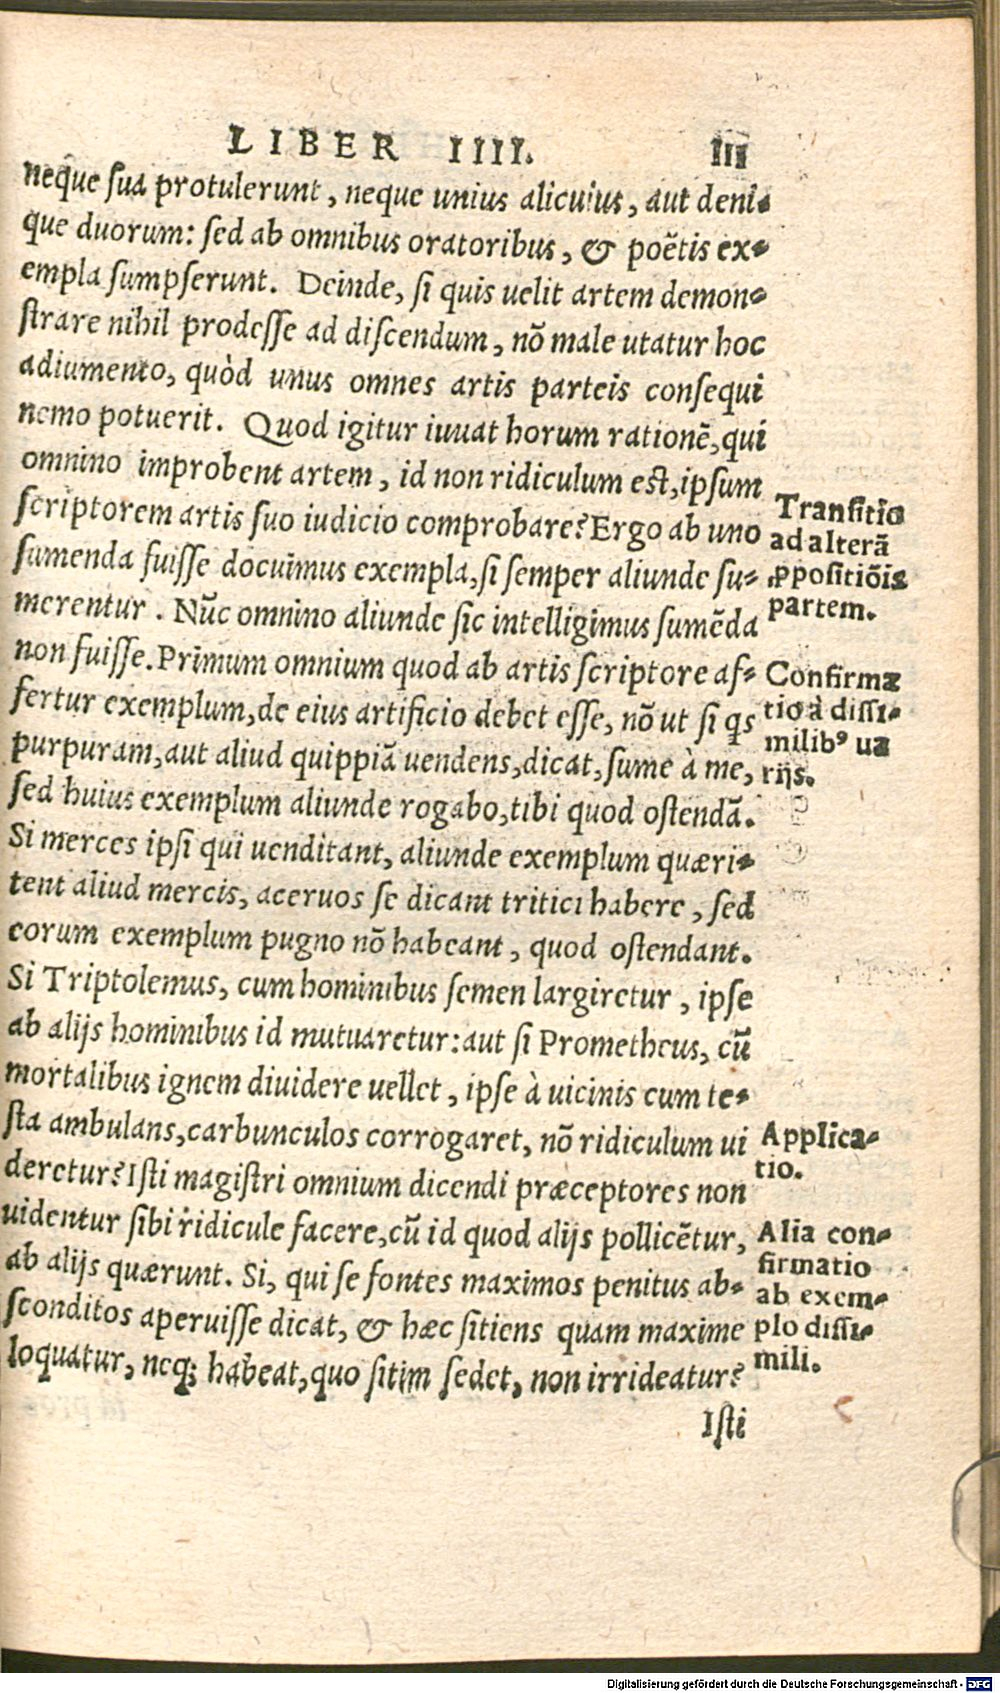 LIBER IIII. 111
neque sua protulerunt, neque unius alicuius, aut deni-
que duorum: sed ab omnibus oratoribus, & poëtis ex-
empla sumpserunt. Deinde, si quis uelit artem demon-
strare nihil prodesse ad discendum, nõ male utatur hoc
adiumento, quòd unus omnes artis parteis consequi
nemo potuerit. Quod igitur iuuat horum rationẽ, qui
omnino improbent artem, id non ridiculum est, ipsum
scriptorem artis suo iudicio comprobare? Ergo ab uno
sumenda fuisse docuimus exempla, si semper aliunde su-
merentur. Nũc omnino aliunde sic intelligimus sumẽda
non fuisse. Primum omnium quod ab artis scriptore af-
fertur exemplum, de eius artificio debet esse, nõ ut si qs
purpuram, aut aliud quippiã uendens, dicat, sume à me,
sed huius exemplum aliunde rogabo, tibi quod ostendã.
Si merces ipsi qui uenditant, aliunde exemplum quæri-
tent aliud mercis, aceruos se dicant tritici habere, sed
eorum exemplum pugno nõ habeant, quod ostendant.
Si Triptolemus, cum hominibus semen largiretur, ipse
ab alijs hominibus id mutuaretur: aut si Prometheus, cũ
mortalibus ignem diuidere uellet, ipse à uicinis cum te-
sta ambulans, carbunculos corrogaret, nõ ridiculum ui
deretur? Isti magistri omnium dicendi præceptores non
uidentur sibi ridicule facere, cũ id quod alijs pollicẽtur,
ab alijs quærunt. Si, qui se fontes maximos penitus ab-
sconditos aperuisse dicat, & hæc sitiens quam maxime
loquatur, neq; habeat, quo sitim sedet, non irrideatur?
Isti
Transitio
ad alterã
ꝓpositiõis
partem.
Confirma
tio à dissi-
milibꝰ ua
rijs.
Applica-
tio.
Alia con-
firmatio
ab exem-
plo dissi-
mili.
Digitalisierung gefördert durch die Deutsche Forschungsgemeinschaft - DFG